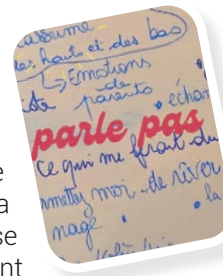 assume
des hauts et des bas
Emotions
de
iste parents échan
parle pas
e
Ce qui me frait du
a
mettez moi de rêver
se
nage la
nt